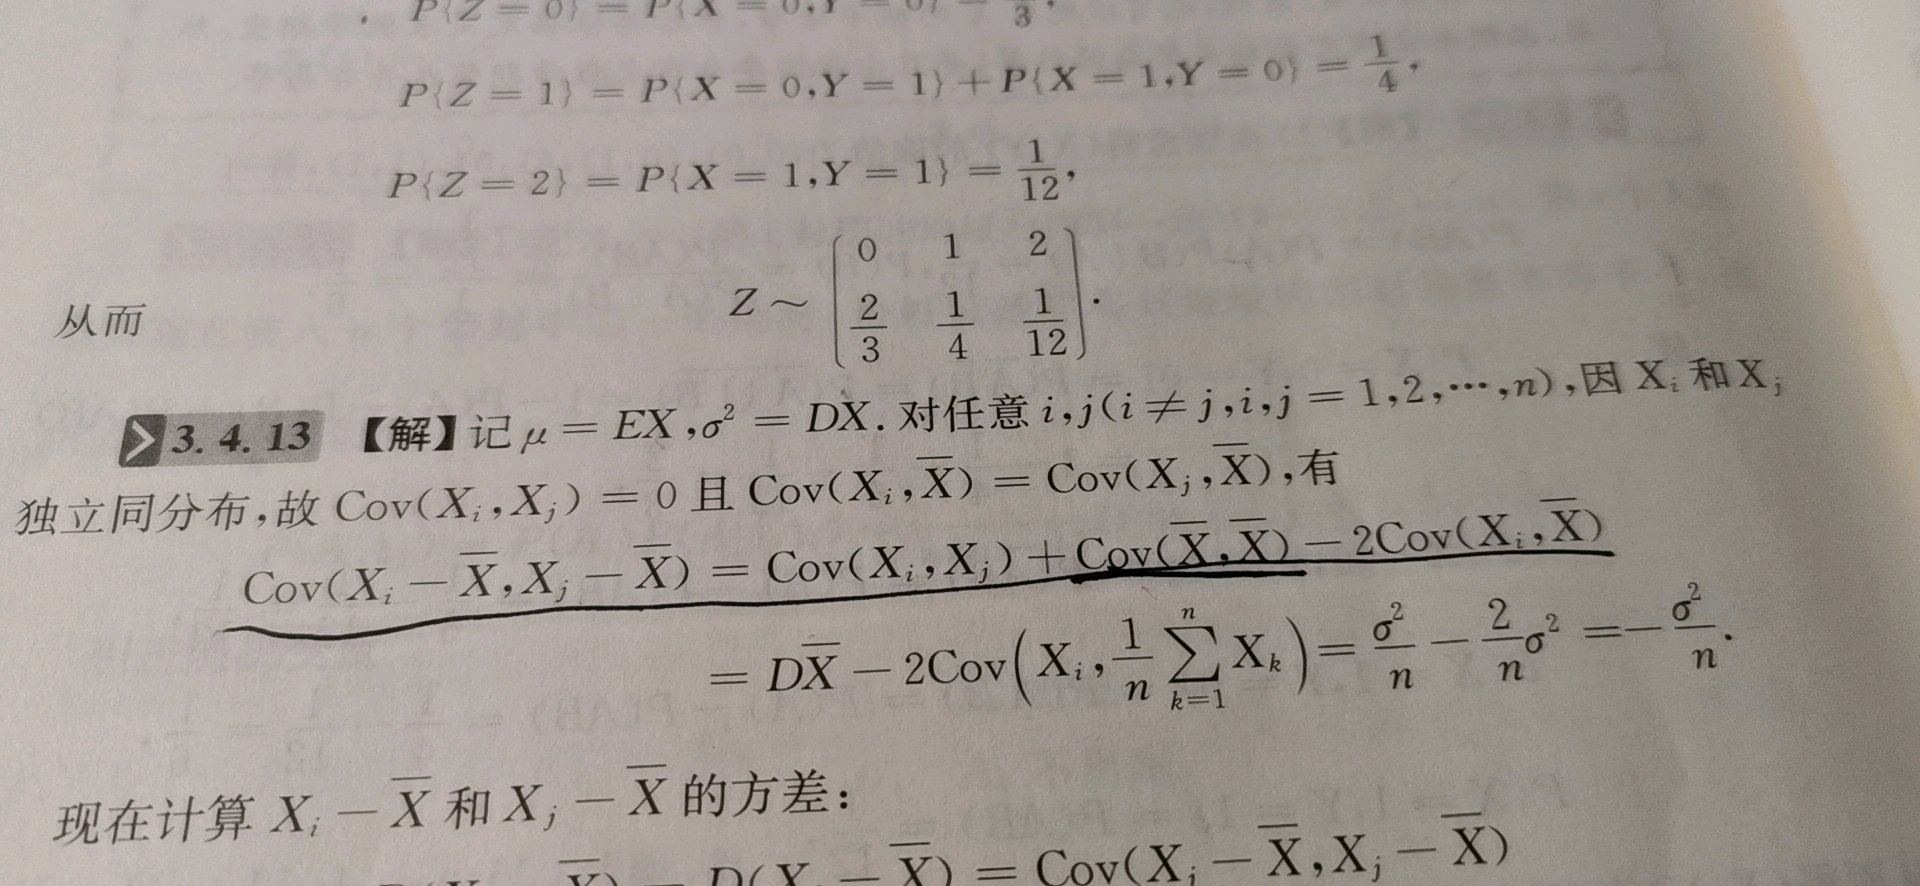 P{Z = 0} = P{X = 0,Y = 0} = 2/3,
P{Z = 1} = P{X = 0,Y = 1} + P{X = 1,Y = 0} = 1/4,
P{Z = 2} = P{X = 1,Y = 1} = 1/12,
从而 Z ~ (0 1 2; 2/3 1/4 1/12).
3.4.13 【解】记 μ = EX,σ² = DX. 对任意 i,j(i ≠ j,i,j = 1,2,⋯,n),因 Xᵢ 和 Xⱼ
独立同分布,故 Cov(Xᵢ,Xⱼ) = 0 且 Cov(Xᵢ,X̅) = Cov(Xⱼ,X̅),有
Cov(Xᵢ − X̅,Xⱼ − X̅) = Cov(Xᵢ,Xⱼ) + Cov(X̅,X̅) − 2Cov(Xᵢ,X̅)
= DX̅ − 2Cov(Xᵢ, 1/n ∑ₖ₌₁ⁿ Xₖ) = σ²/n − 2/n σ² = − σ²/n.
现在计算 Xᵢ − X̅ 和 Xⱼ − X̅ 的方差:
X̅) = D(X − X̅) = Cov(Xⱼ − X̅,Xⱼ − X̅)